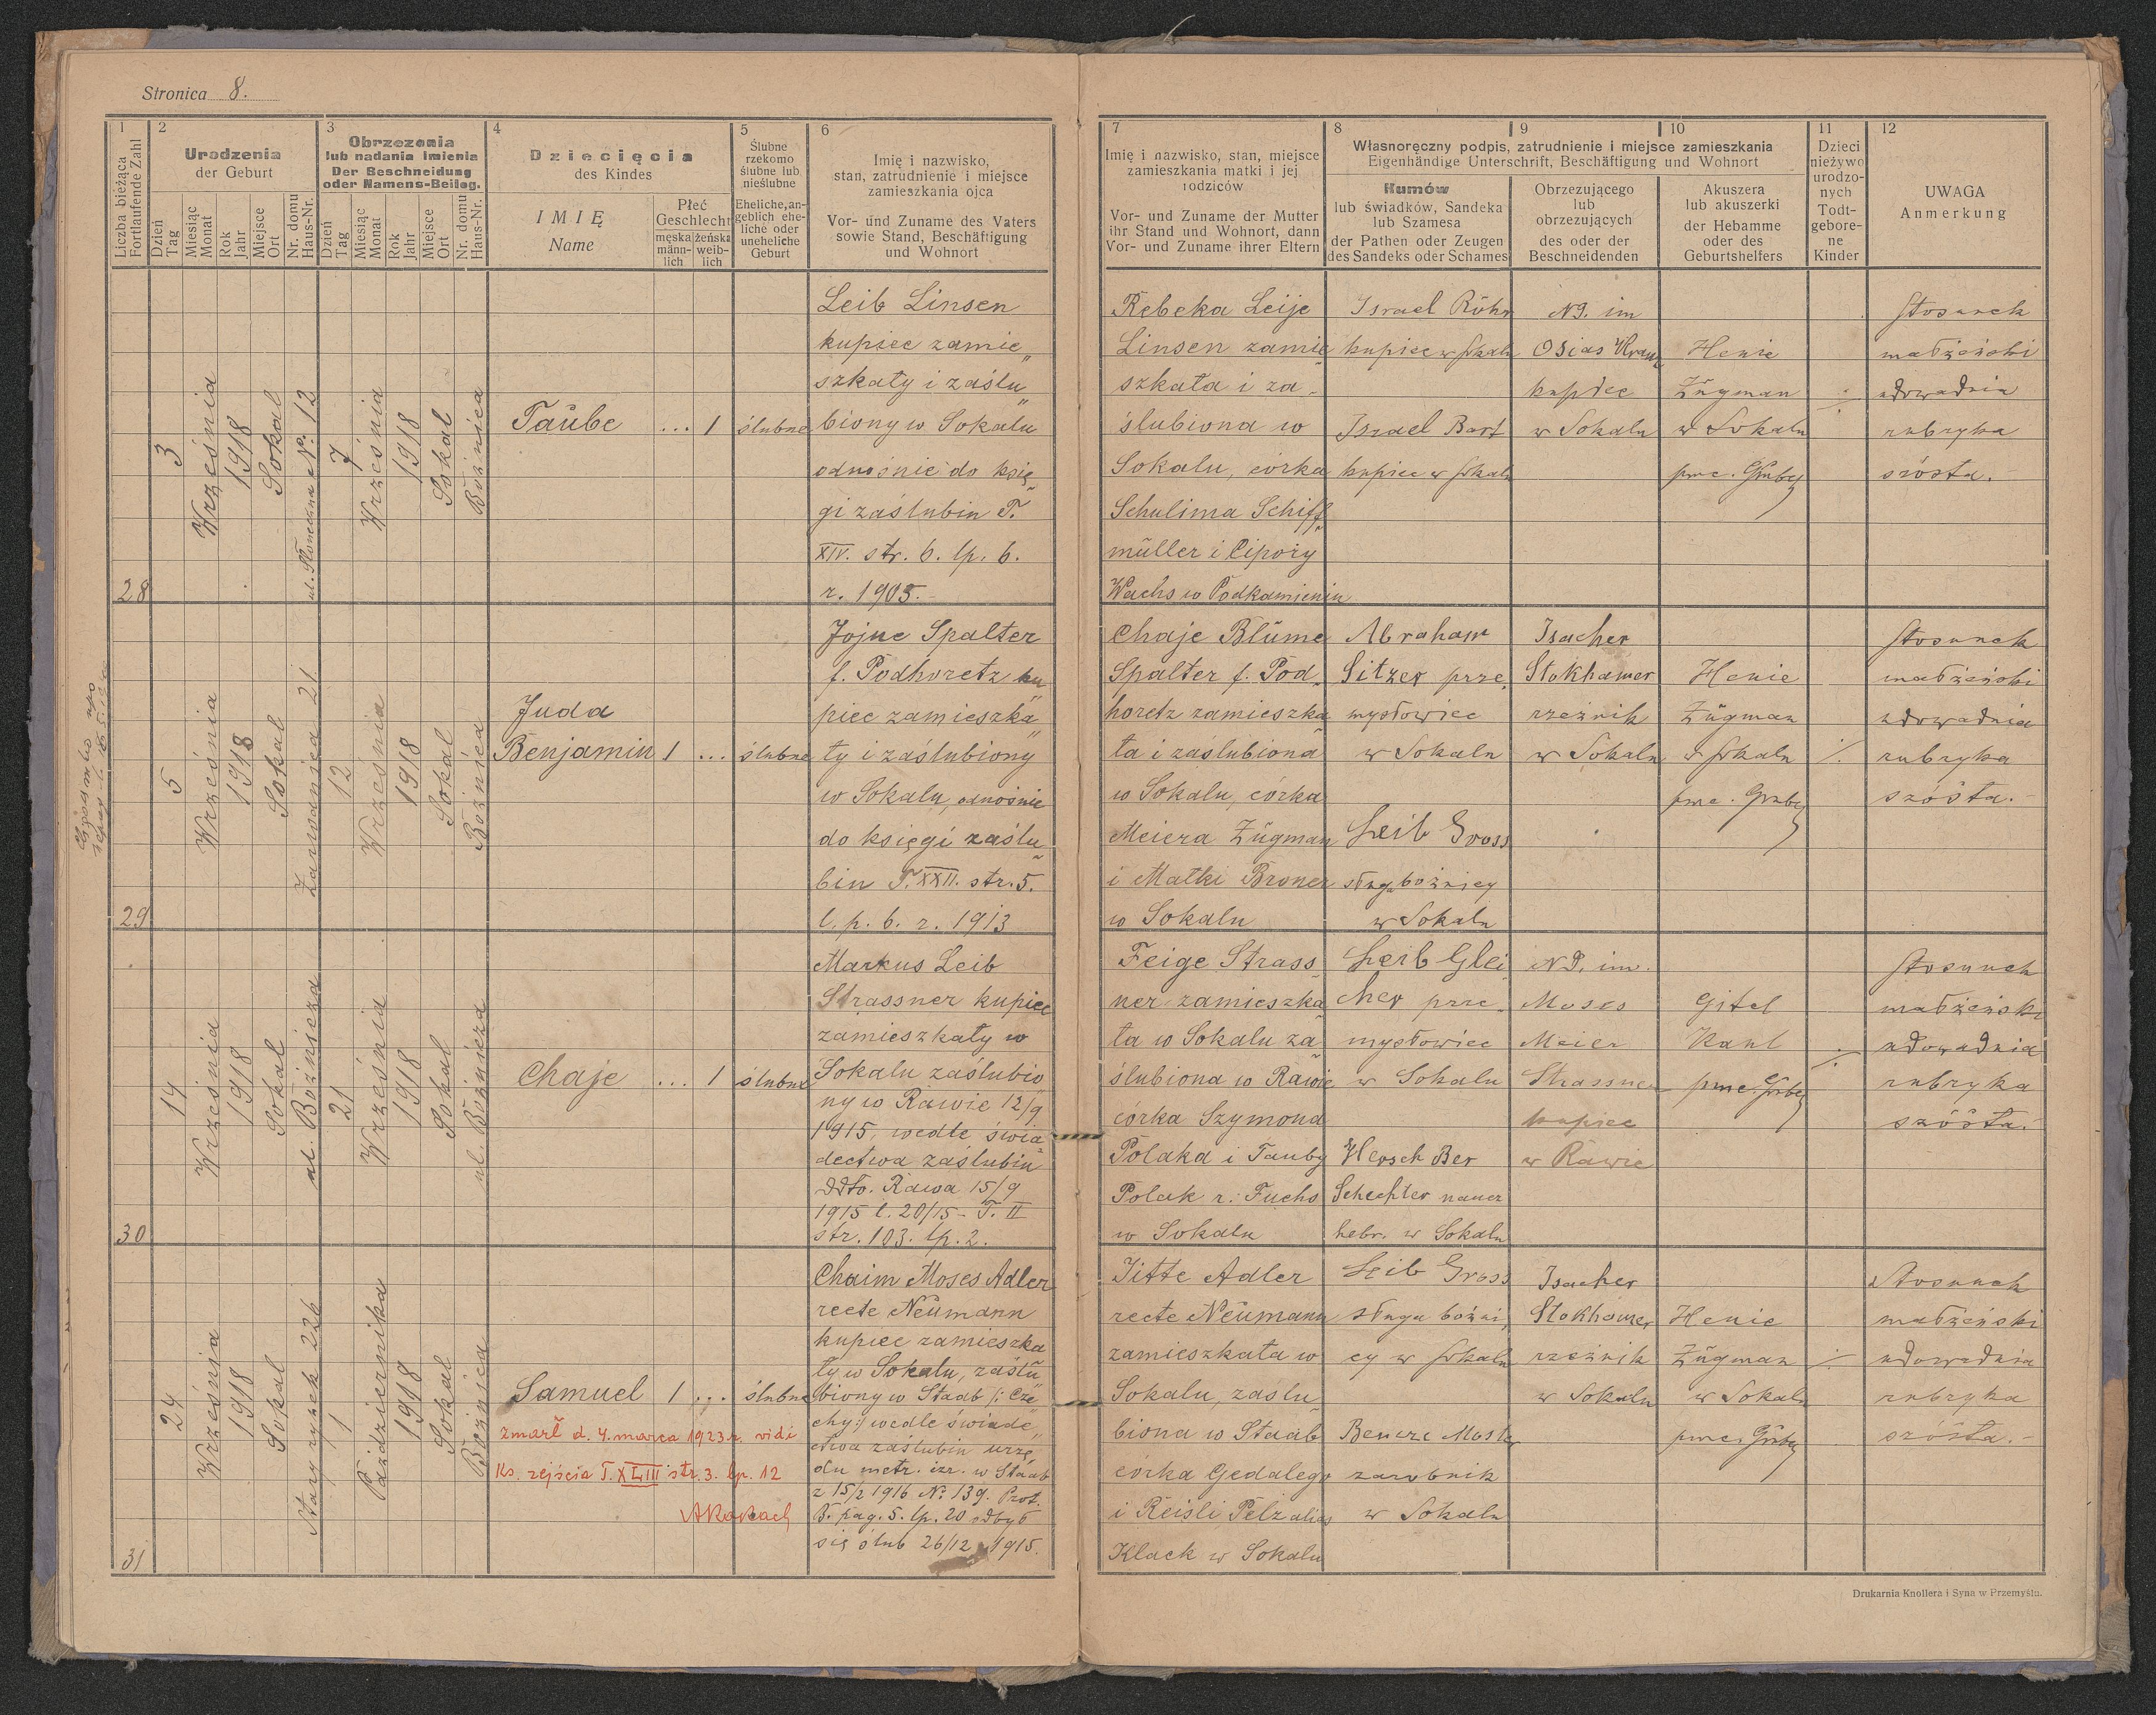 Stronica 8.
1
Liczba bieżąca
Fortlaufende Zahl
2
Urodzenia
der Geburt
Dzień
Tag
Miesiąc
Monat
Rok
Jahr
Miejsce
Ort
Nr. domu
Haus-Nr.
3
Obrzezania
lub nadania imienia
Der Beschneidung
oder Namens-Beileg.
Dzień
Tag
Miesiąc
Monat
Rok
Jahr
Miejsce
Ort
Nr. domu
Haus-Nr.
4
Dziecięcia
des Kindes
IMIĘ
Name
Płeć
Geschlecht
męska
männ-
lich
żeńska
weib-
lich
5
Ślubne
rzekomo
ślubne lub
nieślubne
Eheliche, an-
geblich ehe-
liche oder
uneheliche
Geburt
6
Imię i nazwisko,
stan, zatrudnienie i miejsce
zamieszkania ojca
Vor- und Zuname des Vaters
sowie Stand, Beschäftigung
und Wohnort
7
Imię i nazwisko, stan, miejsce
zamieszkania matki i jej
rodziców
Vor- und Zuname der Mutter
ihr Stand und Wohnort, dann
Vor- und Zuname ihrer Eltern
8
9
10
Własnoręczny podpis, zatrudnienie i miejsce zamieszkania
Eigenhändige Unterschrift, Beschäftigung und Wohnort
Kumów
lub świadków, Sandeka
lub Szamesa
der Pathen oder Zeugen
des Sandeks oder Schames
Obrzezującego
lub
obrzezujących
des oder der
Beschneidenden
Akuszera
lub akuszerki
der Hebamme
oder des
Geburtshelfers
11
Dzieci
nieżywo
urodzo-
nych
Todt-
gebore-
ne
Kinder
12
UWAGA
Anmerkung
28
3
Września
1918
Sokal
ul. Słoneczna N: 12
7
Września
1918
Sokal
Bóżnica
Taübe
... 1
ślubne
Leib Linsen
kupiec zamie
szkały i zaślu
biony w Sokalu
odnośnie do księ
gi zaślubin T.
XIV. str. 6. lp. 6.
r. 1905.
Rebeka Leije
Linsen zamie
szkała i za
ślubiona w
Sokalu, córka
Schulima Schiff
müller i Cipory
Wachs w Podkamieniu
Israel Röhr
kupiec w Sokalu
Israel Bart
kupiec w Sokalu
NJ. im
Osias
kupiec
w Sokalu
Henie
Zügman
w Sokalu
Stosunek
małżeński
udowadnia
rubryka
szósta.
29
5
Września
1918
Sokal
Zarwanica 21
12
Września
1918
Sokal
Bożnica
Juda
Benjamin
1 ...
ślubne
Jojne Spalter
f. Podhoretz ku
piec zamieszka
ły i zaślubiony
w Sokalu, odnośnie
do księgi zaślu
bin T. XXII. str. 5.
l. p. 6. r. 1913
Chaje Blüme
Spalter f. Pod
horetz zamieszka
ła i zaślubiona
w Sokalu, córka
Meiera Zügman
i Malki Broner
w Sokalu
Abraham
Sitzer prze
mysłowiec
w Sokalu
Leib Gross
sługa bożnicy
w Sokalu
Isacher
Stokhamer
rzeźnik
w Sokalu
Henie
Zügman
w Sokalu
Stosunek
małżeński
udowadnia
rubryka
szósta.
30
14
Września
1918
Sokal
ul. Bóżnicza
21
Września
1918
Sokal
ul. Bóżnicza
Chaje
... 1
ślubne
Markus Leib
Strassner kupiec
zamieszkały w
Sokalu zaślubio
ny w Rawie 12/9
1915, wedle świa
dectwa zaślubin
ddto. Rawa 15/9
1915 l. 20/15 - T. II
str. 103. lp. 2.
Feige Strass
ner zamieszka
ła w Sokalu za
ślubiona w Rawie
córka Szymona
Polaka i Tauby
Polak r. Fuchs
w Sokalu
Leib Glei
cher prze
mysłowiec
w Sokalu
Hersch Ber
Schechter naucz
hebr. w Sokalu
NJ. im.
Moses
Meier
Strassner
kupiec
w Rawie
Gitel
Kanl
Stosunek
małżeński
udowadnia
rubryka
szósta.
31
24
Września
1918
Sokal
Stary rynek 226
1
Października
1918
Sokal
Bożnica
Samuel
1 ...
ślubne
zmarł d. 4. marca 1923 r. vidi
Ks. zejścia T. XLIII str. 3. lp. 12
Chaim Moses Adler
recte Neümann
kupiec zamieszka
ły w Sokalu, zaślu
biony w Staab /: Cze
chy :/ wedle świade
ctwa zaślubin urzę
du metr. izr. w Staab
z 15/2 1916 N: 139. Prot.
B. pag. 5. lp. 20 odbył
się ślub 26/12 1915.
Jitte Adler
recte Neümann
zamieszkała w
Sokalu, zaślu
biona w Staab
córka Gedalego
i Reisli Pelz alias
Klack w Sokalu
Leib Gross
sługa bożni
cy w Sokalu
zarobnik
w Sokalu
Isacher
Stokhamer
rzeźnik
w Sokalu
Henie
Zügman
w Sokalu
Stosunek
małżeński
udowadnia
rubryka
szósta.
Drukarnia Knollera i Syna w Przemyślu.